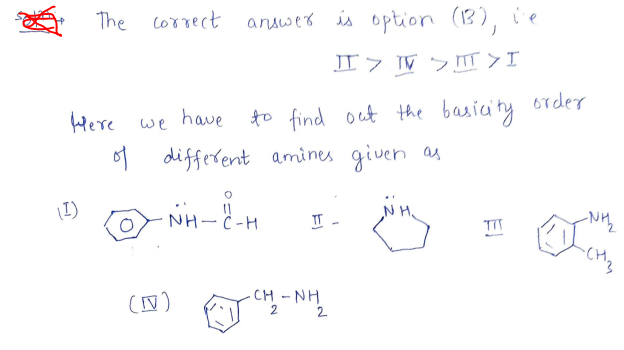 The correct answer is option (B), i'e
II > IV > III > I
Here we have to find out the basicity order
of different amines given as
(I) NH - C - H O II - NH III NH2 CH3
(IV) CH2 - NH2